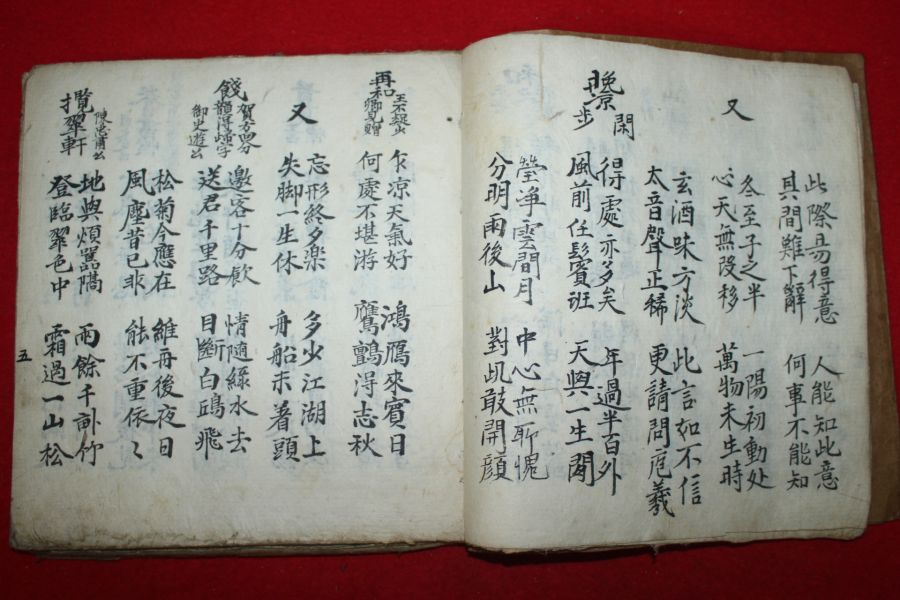 此際易得意 人能知此意
其間難下辭 何事不能知
又
冬至子之半 一陽初動处
心天無改移 萬物未生時
玄酒味方淡 此言如不信
太音聲正稀 更請問庖羲
晚凉閑步
得處亦多矣 年過半百外
風前任鬢斑 天與一生閑
瑩淨雲間月 中心無所愧
分明雨後山 對此敢開顔
再和王不疑少卿見贈
乍凉天氣好 鴻鴈來賓日
何處不堪游 鷹鸇得志秋
又
忘形終夕樂 多少江湖上
失脚一生休 舟船未着頭
餞
御史遊公
邀客十分飲 情隨綠水去
送君千里路 目斷白鷗飛
松菊今應在 維再後夜日
風塵昔已非 能不重依〻
攬翠軒
地與煩囂隔 雨餘千竹
登臨翠色中 霜過一山松
五